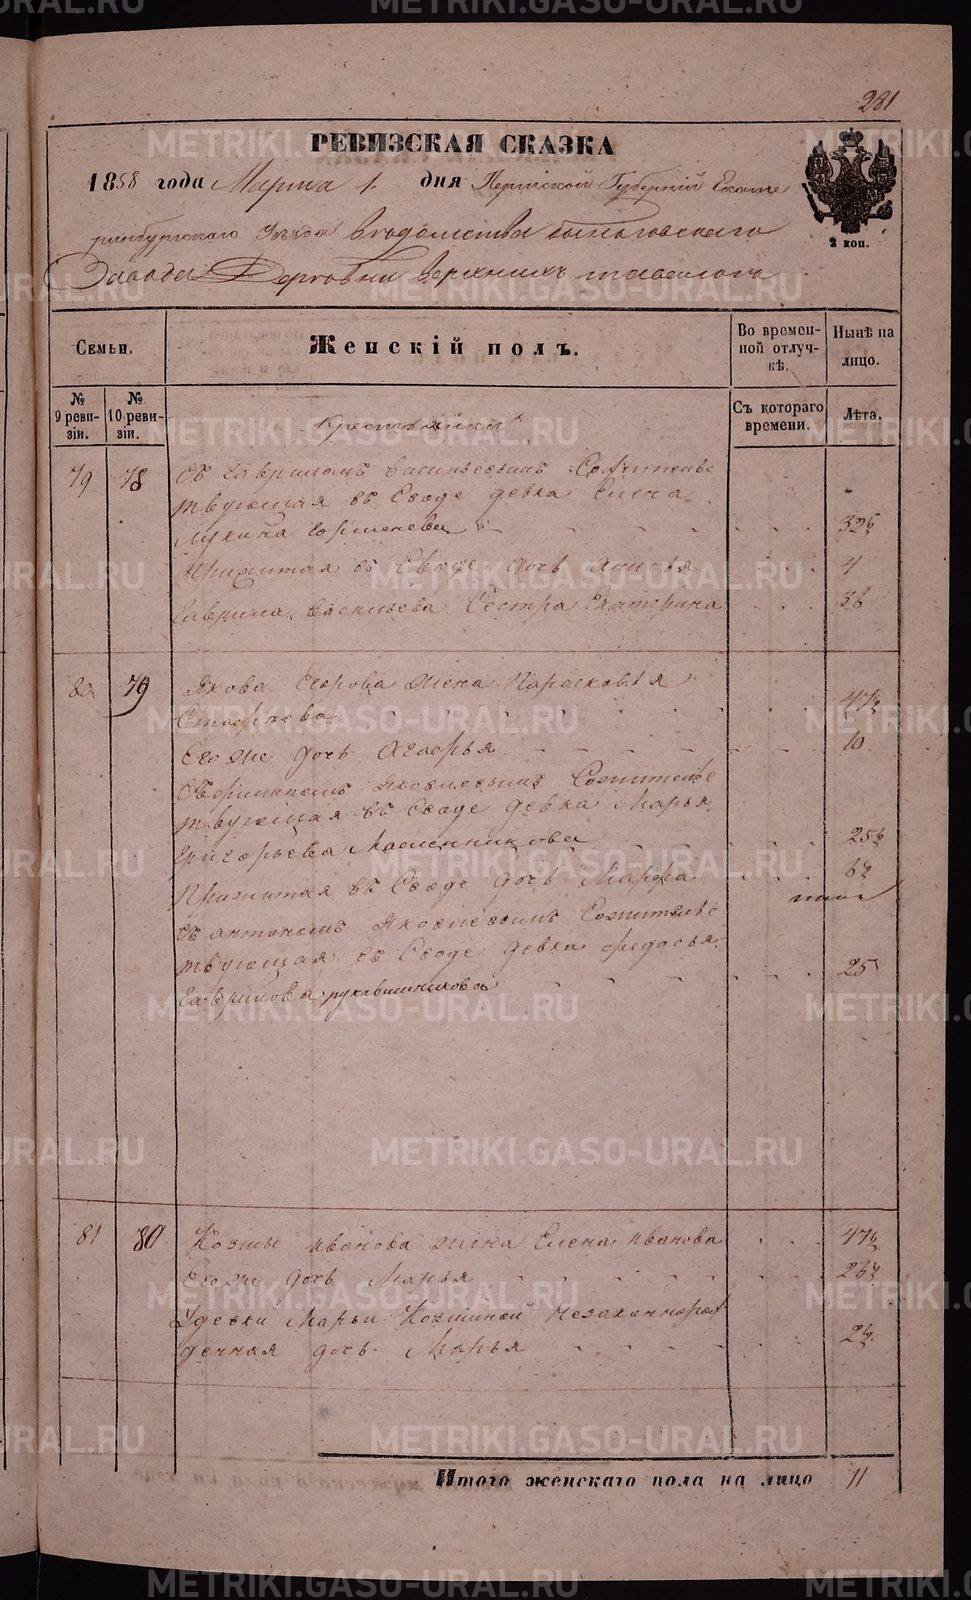 281
РЕВИЗСКАЯ СКАЗКА
1858 года Марта 1 дня Пермской Губерній Екате
ринбургскаго Уезда Ведомства
Завода Деревни Верхнихъ
2 коп.
Семьи.
Женскій полъ.
Во времен-
ной отлуч-
кѣ.
Нынѣ на
лицо.
№
9 реви-
зіи.
№
10 реви-
зіи.
Съ котораго
времени.
Лѣта.
Крестьянки
79 78 Съ Гавриломъ Васильевымъ Сожительс
твующая въ Сводѣ девка Елена
Лукина
Прижитая въ Сводѣ дочь Анисья 4
Гаврила Васильева Сестра Екатерина
80 79 Якова Егорова жена Парасковья
Его же дочь Агафья 10
Яковлевымъ Сожительс
твующая въ Сводѣ девка Марья
Григорьева Масленникова
Прижитая въ Сводѣ дочь Марфа
Съ Антономъ Яковлевымъ Сожительс
твующая въ Сводѣ девка Федосья
Гаврилова рукавишникова 25
81 80 Козмы Иванова жена Елена Иванова
Его же дочь Марья
У девки Марьи Козминой незаконнорож
денная дочь Марья
Итого женскаго пола на лицо 11
METRIKI.GASO-URAL.RU